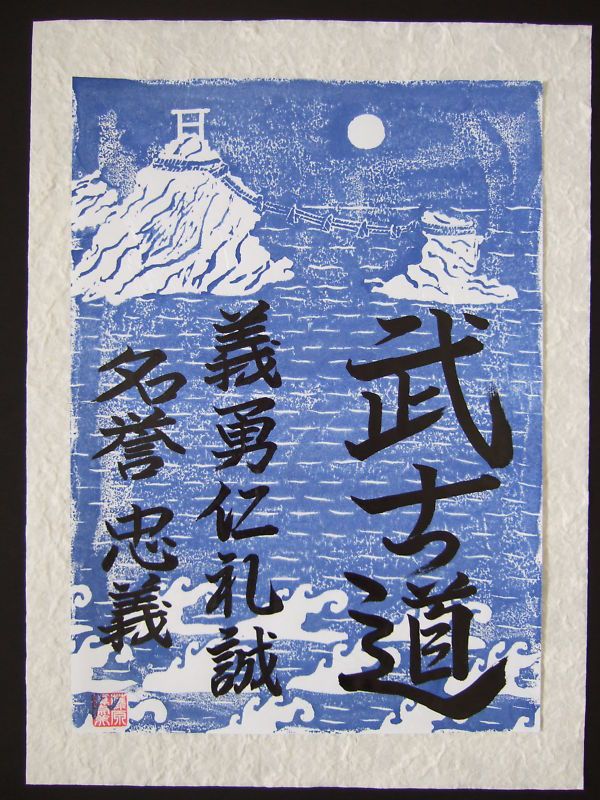 武士道
義勇仁礼誠
名誉忠義